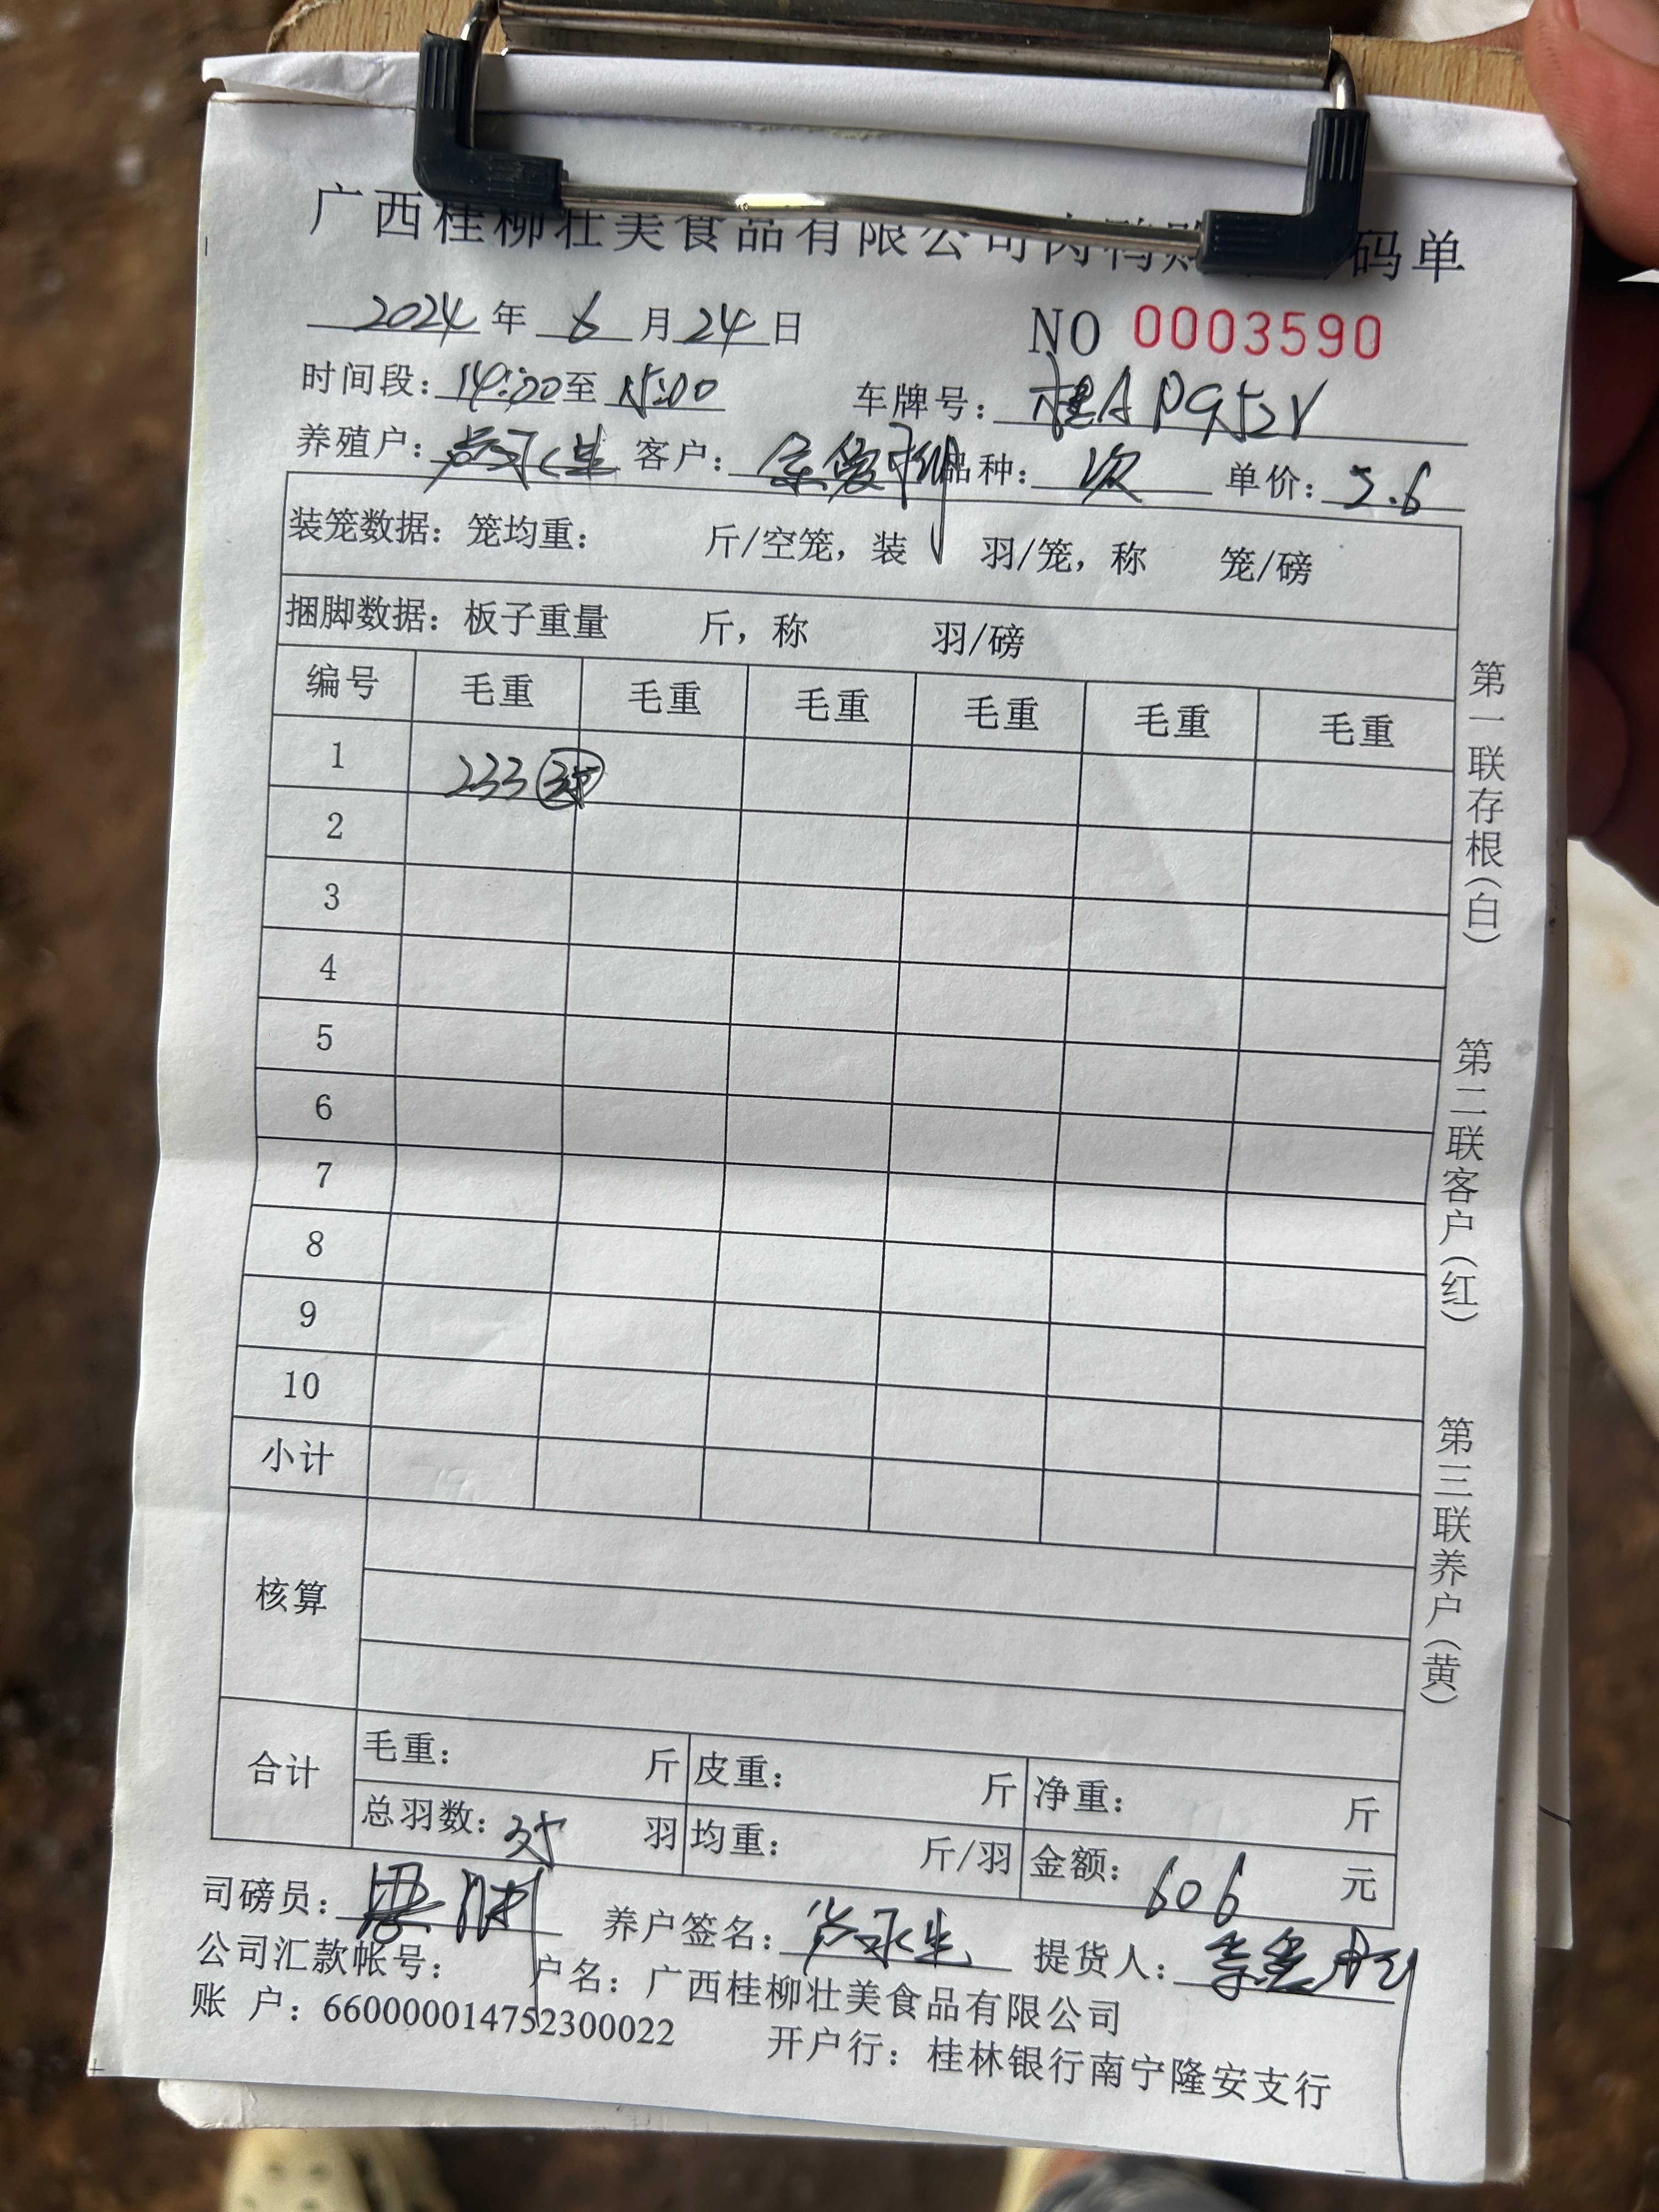 广西桂柳壮美食品有限公司肉鸭 码单
2024年 6月24日 NO 0003590
时间段：14:00至 15:00 车牌号：桂A
养殖户： 永生 客户： 品种：次 单价：2.6
装笼数据：笼均重： 斤/空笼，装 羽/笼，称 笼/磅
捆脚数据：板子重量 斤，称 羽/磅
编号 毛重 毛重 毛重 毛重 毛重 毛重
1 233
2
3
4
5
6
7
8
9
10
小计
核算
合计 毛重： 斤 皮重： 斤 净重： 斤
总羽数： 羽 均重： 斤/羽 金额：606 元
司磅员： 养户签名： 永生 提货人：
公司汇款帐号： 户名：广西桂柳壮美食品有限公司
账 户：660000014752300022 开户行：桂林银行南宁隆安支行
第一联存根（白） 第二联客户（红） 第三联养户（黄）